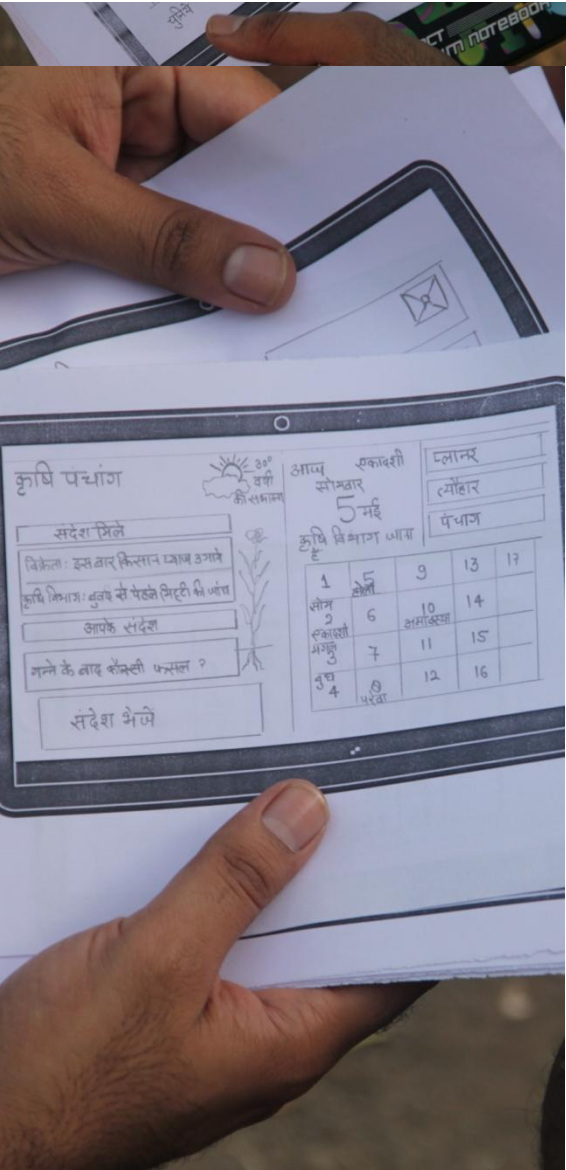 चुनिये
CT
M NOTEBOOK
कृषि पंचांग
30°
वर्षा
की संभावना
संदेश मिले
विक्रेता: इस बार किसान प्याज उगाये
कृषि विभाग: बुवाई से पहले मिट्टी की जांच
आपके संदेश
गन्ने के बाद कौनसी फसल ?
संदेश भेजें
आज एकादशी
सोमवार
5 मई
कृषि विभाग जाना
है
प्लानर
त्यौहार
पंचांग
1 5 9 13 17
होली
सोम
2 6 10 14
एकादशी अमावस्या
मंगल
3 7 11 15
बुध
4 8 12 16
परवा